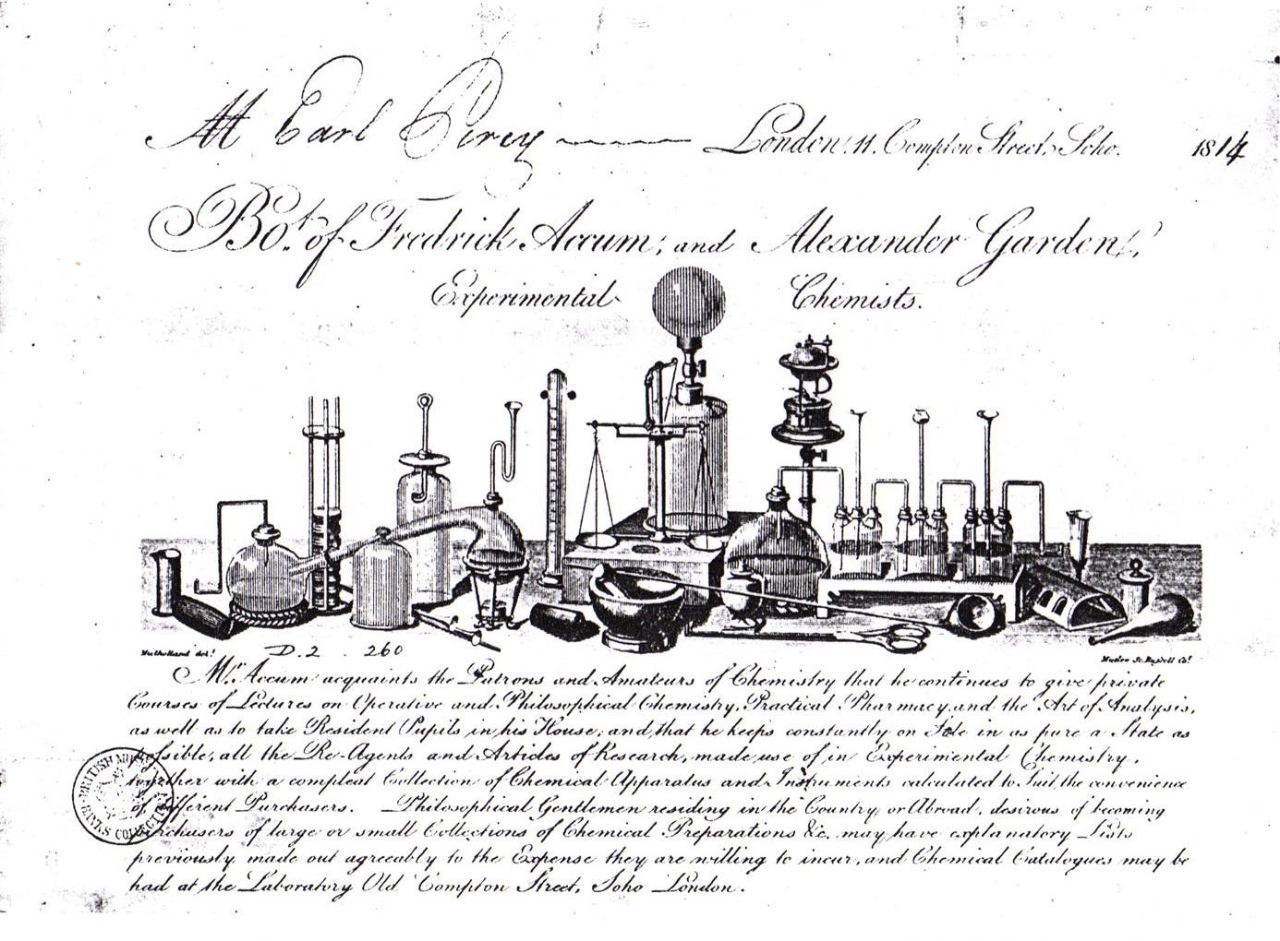 Mr Earl Percy London. 11. Compton Street, Soho. 1814
Bot. of Fredrick Accum, and Alexander Garden,
Experimental Chemists.
Mulholland delt.
D.2 . 260
Mr. Accum acquaints the Patrons and Amateurs of Chemistry that he continues to give private
Courses of Lectures on Operative and Philosophical Chemistry, Practical Pharmacy, and the Art of Analysis,
as well as to take Resident Pupils in his House, and that he keeps constantly on Sale in as pure a State as
possible, all the Re-Agents and Articles of Research, made use of in Experimental Chemistry,
together with a compleat Collection of Chemical Apparatus and Instruments calculated to Suit the convenience
of different Purchasers. Philosophical Gentlemen residing in the Country or Abroad, desirous of becoming
Purchasers of large or small Collections of Chemical Preparations &c, may have explanatory Lists
previously made out agreeably to the Expense they are willing to incur, and Chemical Catalogues may be
had at the Laboratory Old Compton Street, Soho London.
BRITISH MUSEUM
BANKS COLLECTION